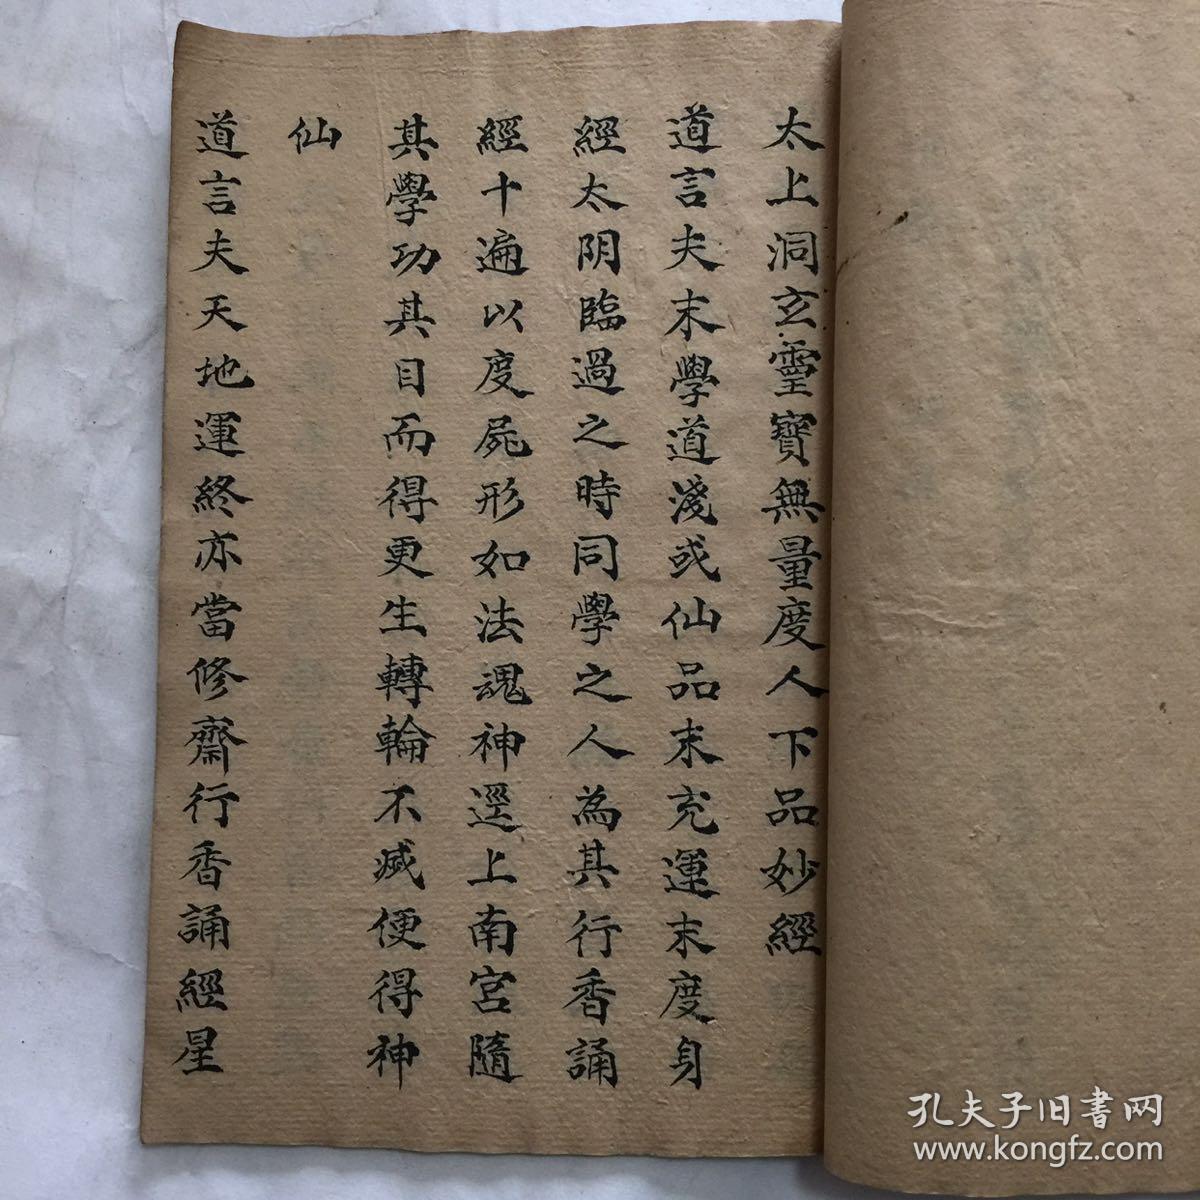 太上洞玄靈寶無量度人下品妙經
道言夫末學道淺或仙品末充運末度身
經太阴臨過之時同學之人為其行香誦
經十遍以度屍形如法魂神逕上南宮隨
其學功其目而得更生轉輪不滅便得神
仙
道言夫天地運終亦當修齋行香誦經星
孔夫子旧书网
www.kongfz.com